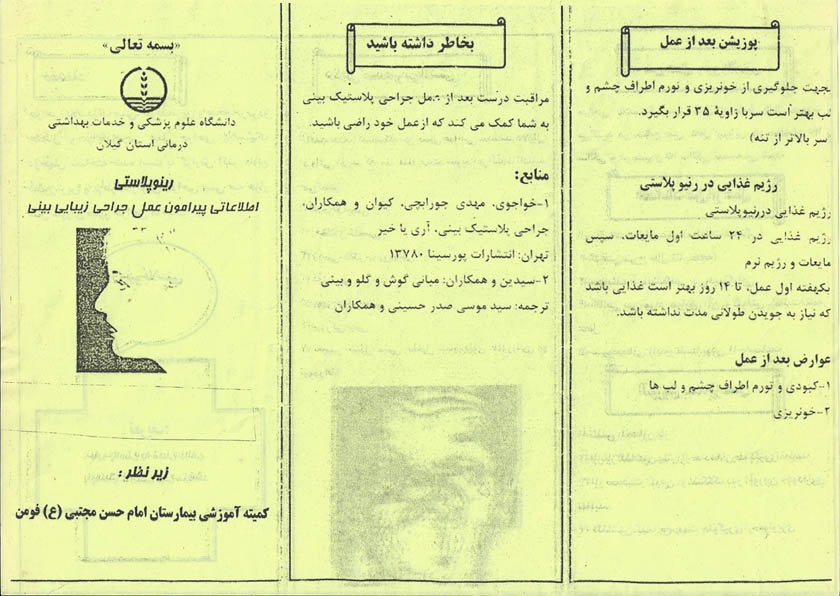 پوزیشن بعد از عمل
جهت جلوگیری از خونریزی و تورم اطراف چشم و
لب بهتر است سربا زاویهٔ ۳۵ قرار بگیرد.
(سر بالاتر از تنه)
رژیم غذایی در رنیو پلاستی
رژیم غذایی دررنیوپلاستی
رژیم غذایی در ۲۴ ساعت اول مایعات، سپس
مایعات و رژیم نرم
یکهفته اول عمل، تا ۱۴ روز بهتر است غذایی باشد
که نیاز به جویدن طولانی مدت نداشته باشد.
عوارض بعد از عمل
۱-کبودی و تورم اطراف چشم و لب ها
۲-خونریزی
بخاطر داشته باشید
مراقبت درست بعد از عمل جراحی پلاستیک بینی
به شما کمک می کند که ازعمل خود راضی باشید.
منابع:
۱-خواجوی، مهدی جورابچی، کیوان و همکاران،
جراحی پلاستیک بینی، آری یا خیر
تهران: انتشارات پورسینا ۱۳۷۸۰
۲-سیدین و همکاران: مبانی گوش و گلو و بینی
ترجمه: سید موسی صدر حسینی و همکاران
«بسمه تعالی»
دانشگاه علوم پزشکی و خدمات بهداشتی
درمانی استان گیلان
رینوپلاستی
اطلاعاتی پیرامون عمل جراحی زیبایی بینی
زیر نظر :
کمیته آموزشی بیمارستان امام حسن مجتبی (ع) فومن